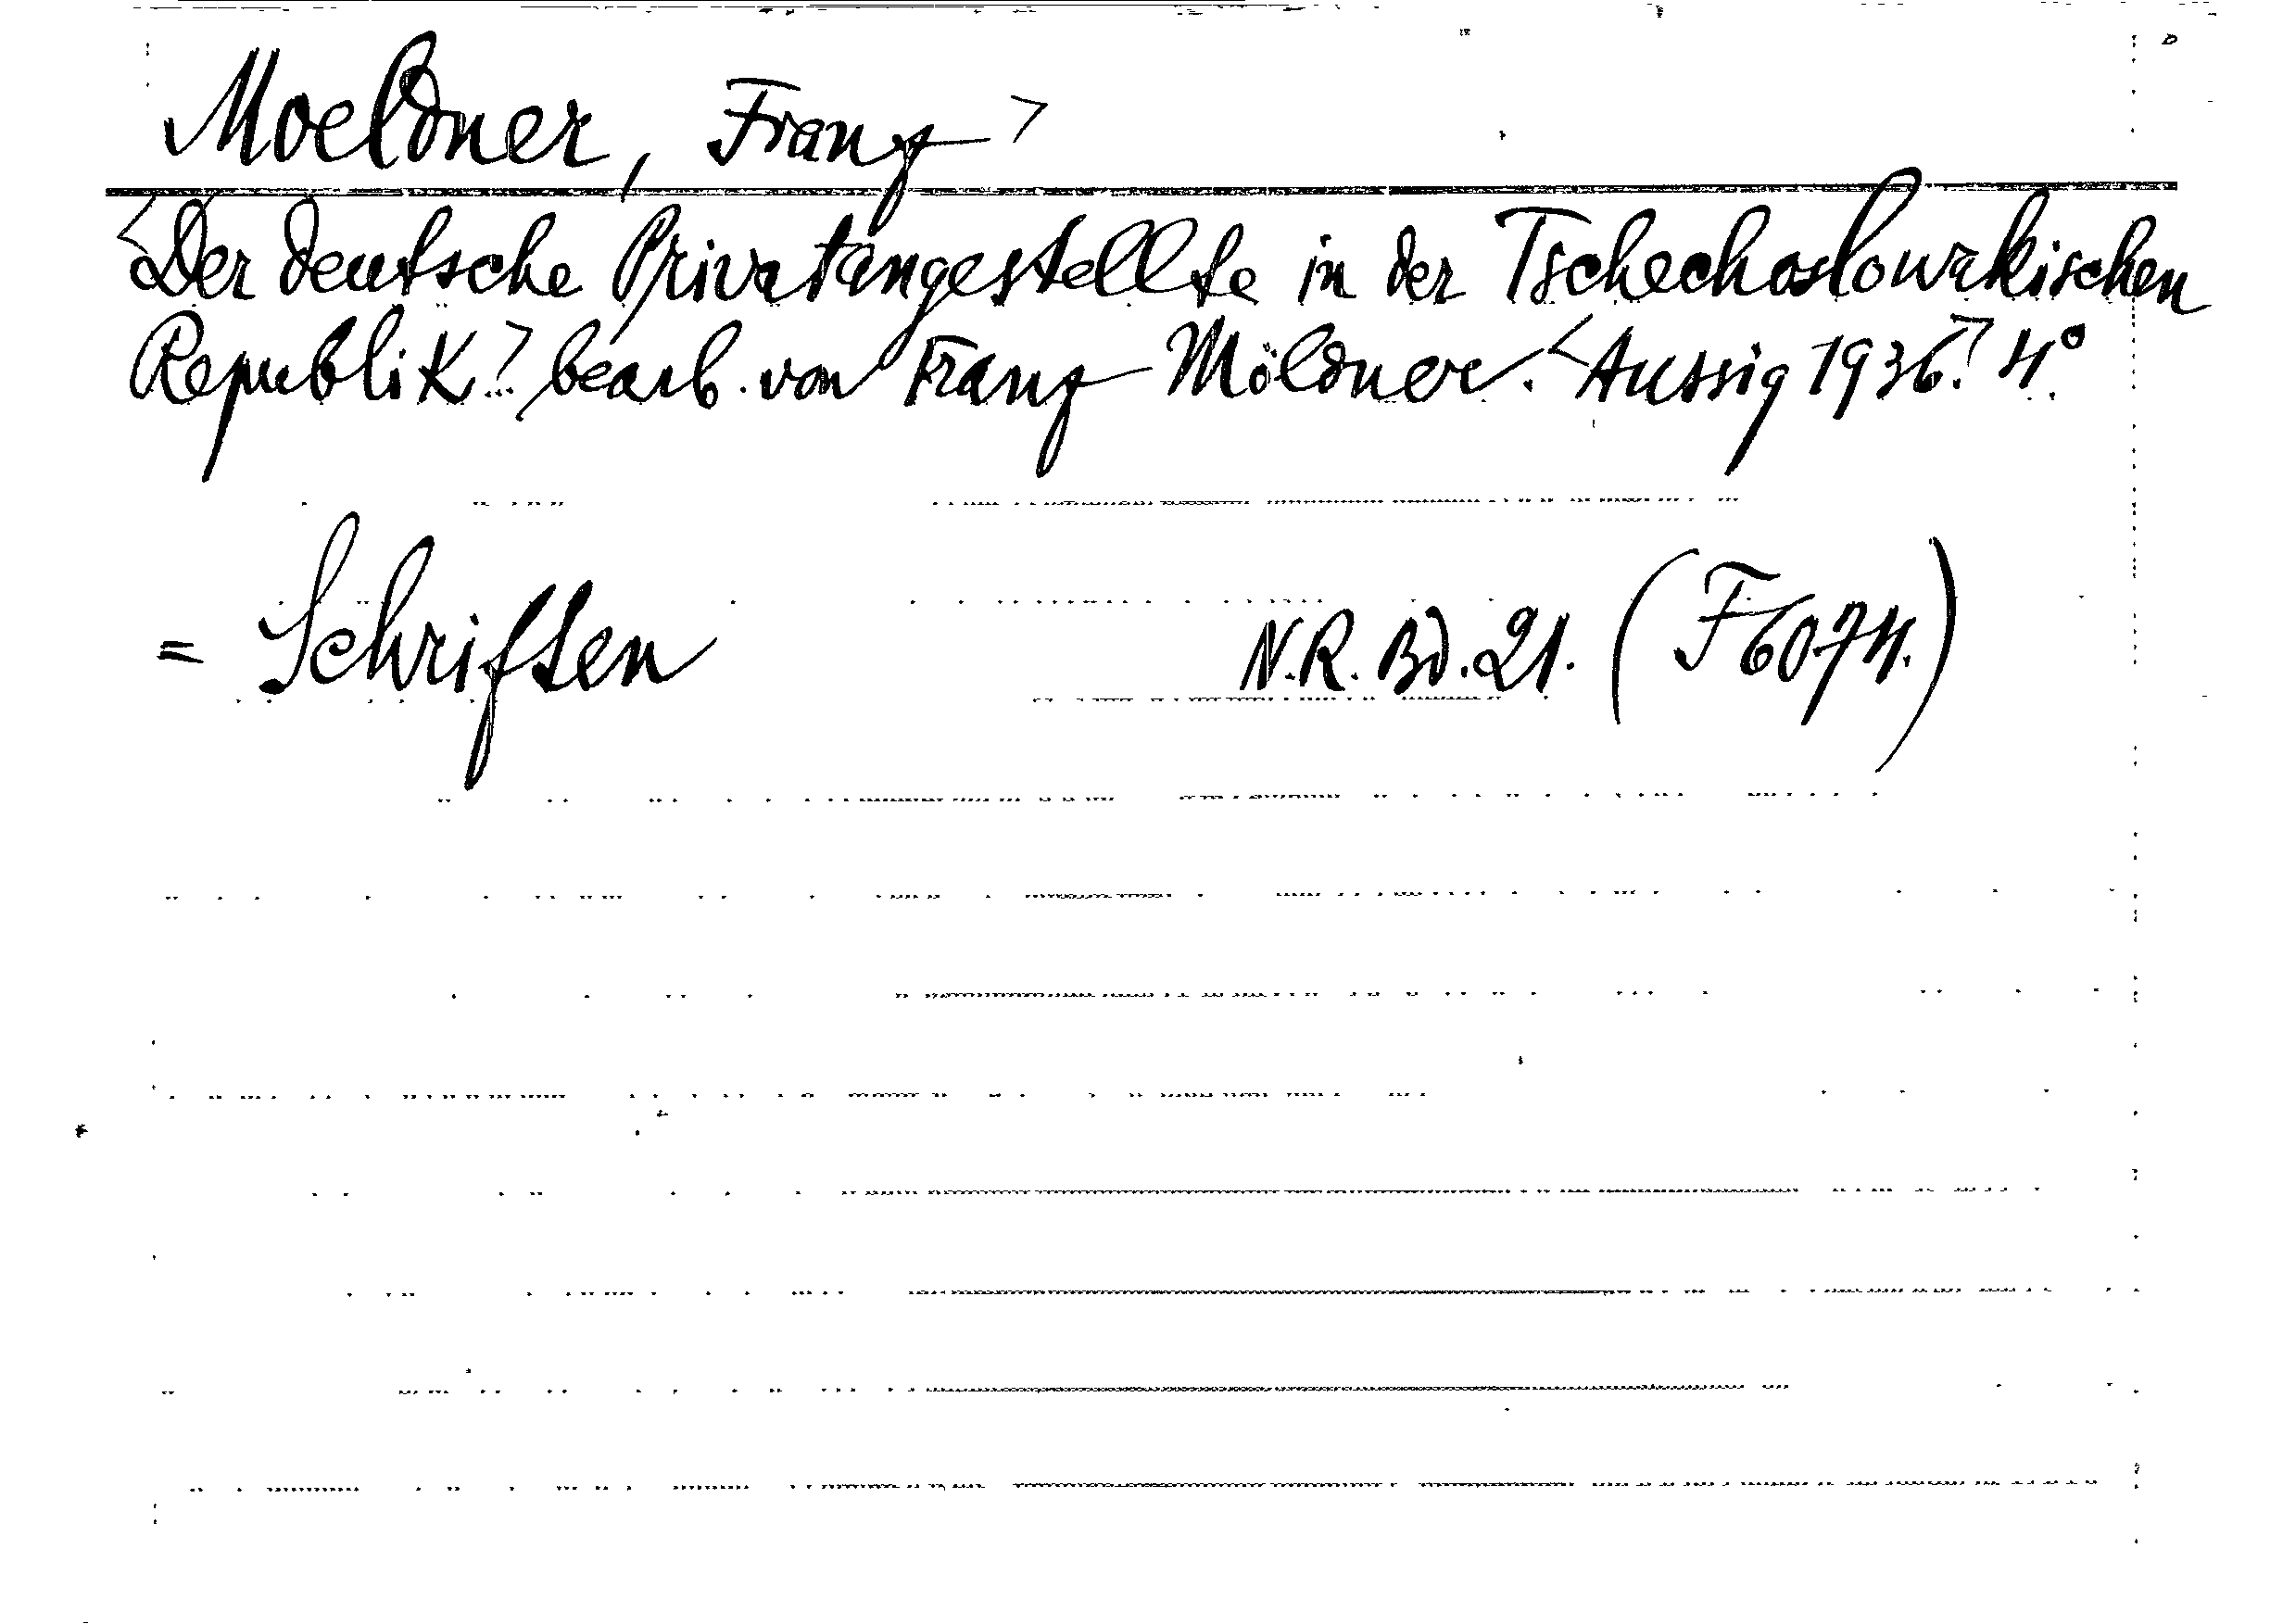 Moeldner, Franz >
<Der deutsche Privatangestellte in der Tschechoslowakischen
Republik.> bearb. von Franz Möldner. <Aussig 1936.> 4°.
= Schriften N.R. Bd. 21. (F 6074.)